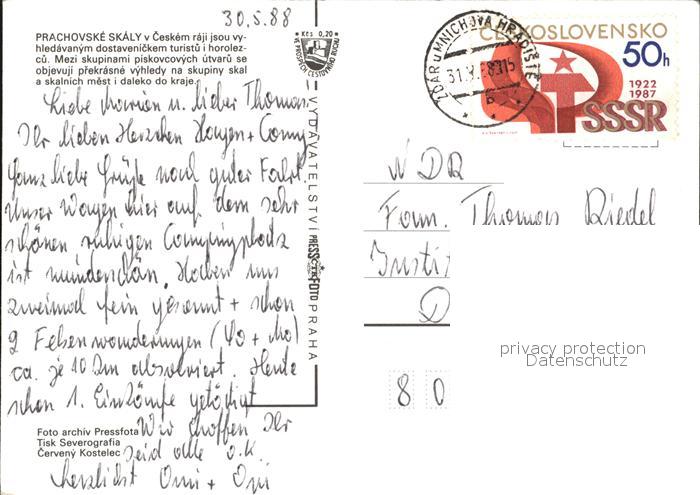 30.5.88
PRACHOVSKÉ SKÁLY v Českém ráji jsou vy-
hledávaným dostaveníčkem turistů i horolez-
ců. Mezi skupinami pískovcových útvarů se
objevují překrásné výhledy na skupiny skal
a skalních měst i daleko do kraje.
Kčs 0,20
VE PROSPĚCH CESTOVNÍHO RUCHU
Liebe Marion u. lieber Thomas
Ihr lieben Herzchen Hagen + Conny
Ganz liebe Grüße nach guter Fahrt.
Unser Wagen hier auf dem sehr
schönen ruhigen Campingplatz
ist wunderschön. Haben uns
zweimal fein gesonnt + schon
2 Felsenwanderungen (So + Mo)
ca. je 10 km absolviert. Heute
schon 1. Einkäufe getätigt
Wir hoffen Ihr
seid alle o.k.
Herzlichst Omi + Opi
Foto archiv Pressfota
Tisk Severografia
Červený Kostelec
VYDAVATELSTVÍ PRESSFOTO PRAHA
ČTK
ČESKOSLOVENSKO
50h
1922
1987
SSSR
ŽĎÁR u MNICHOVA HRADIŠTĚ
NDR
Fam. Thomas Riedel
Insti
D
80
privacy protection
Datenschutz